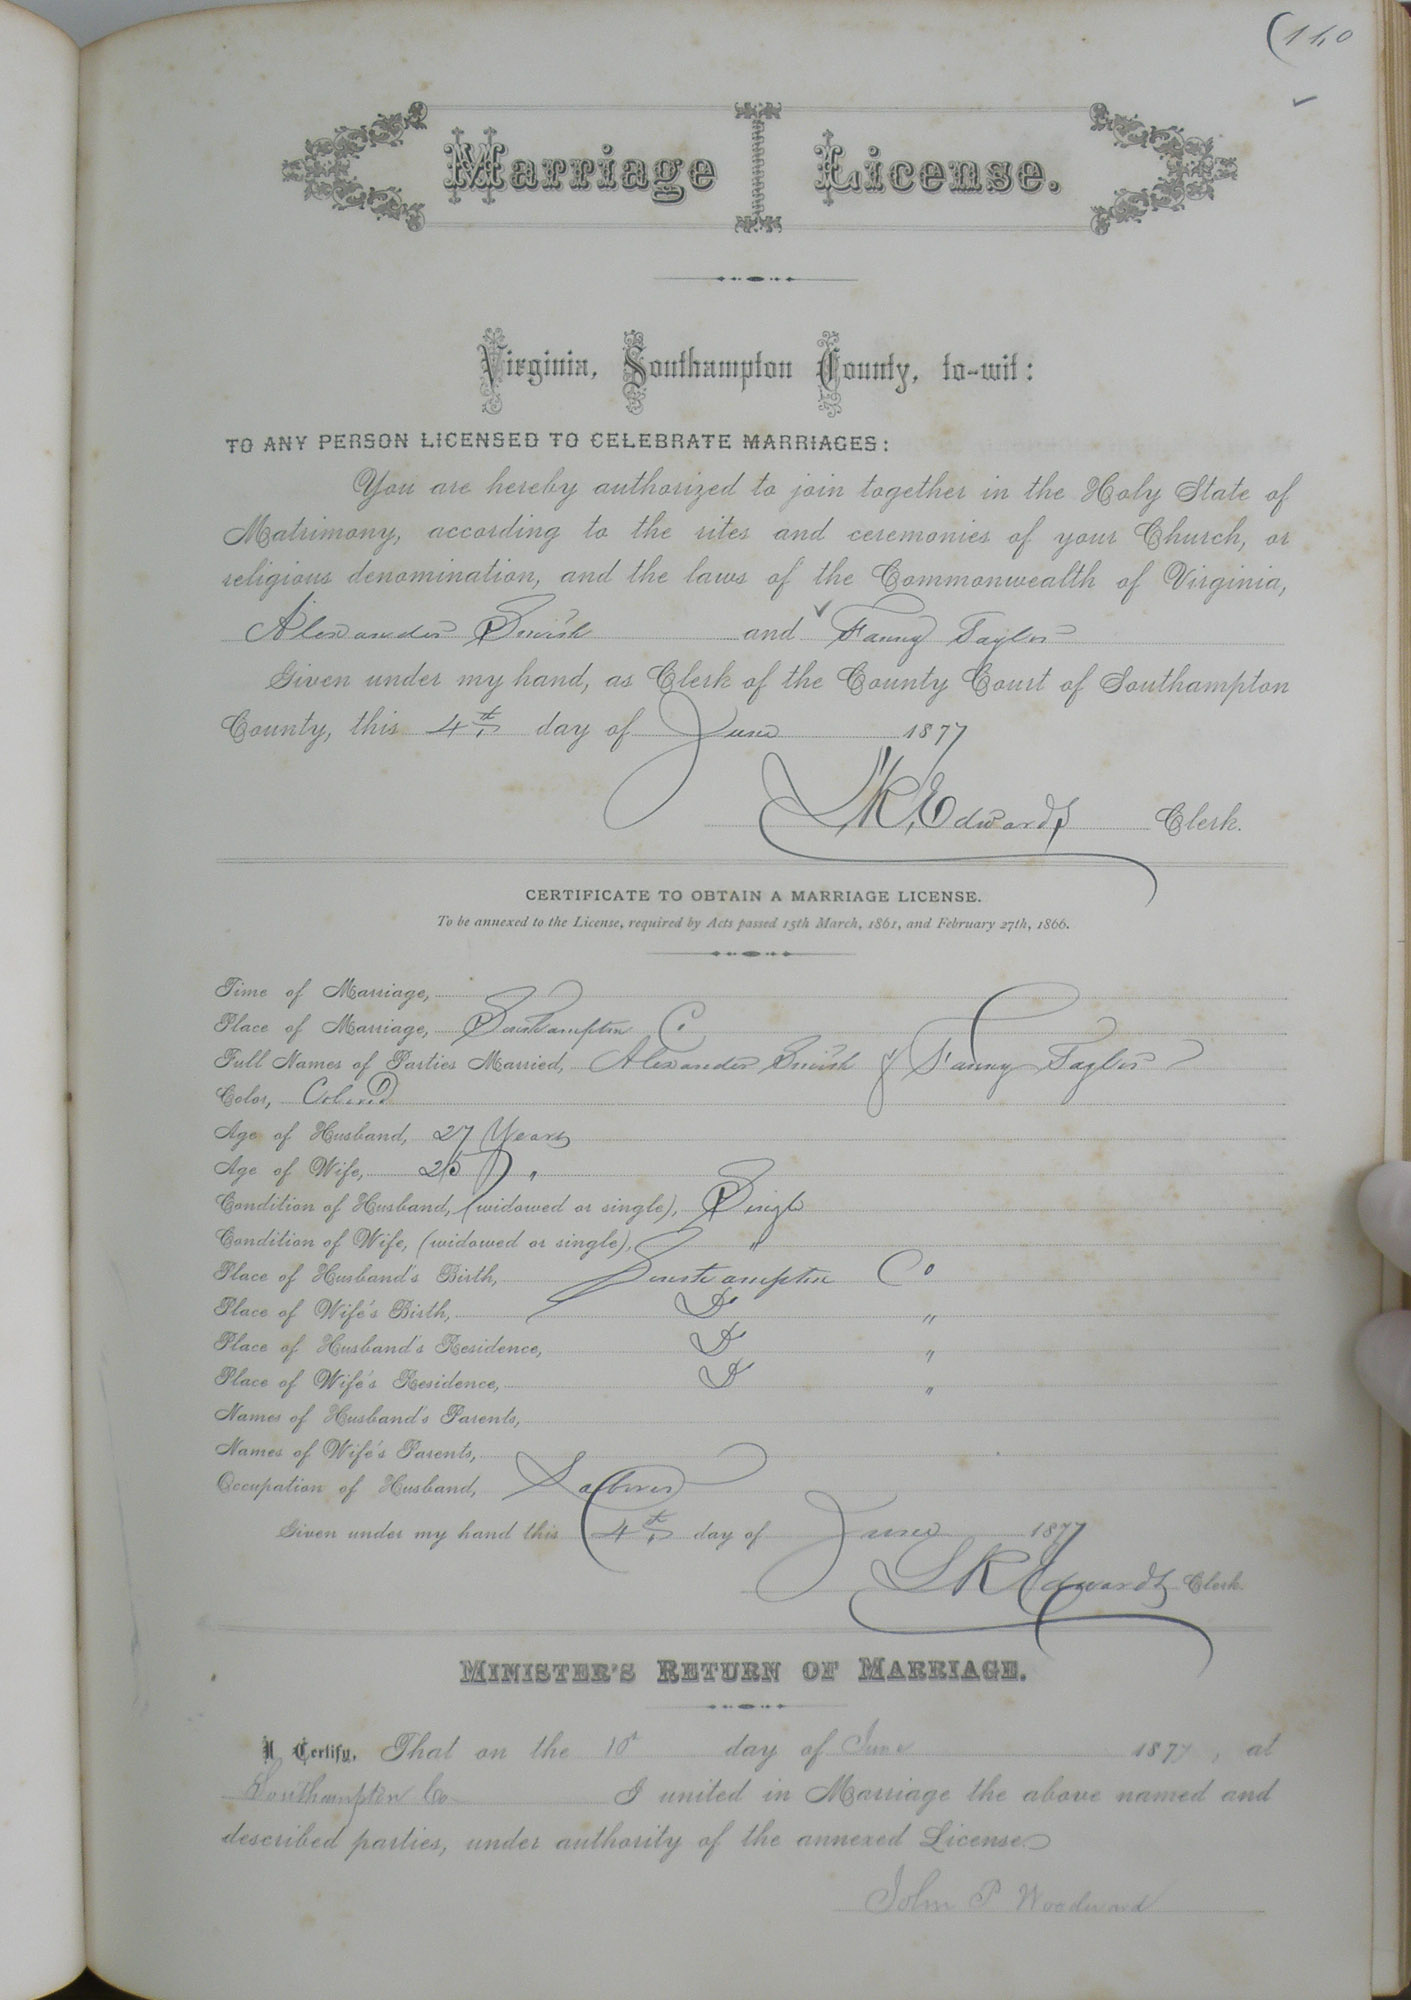 (140
Marriage License.
Virginia, Southampton County, to-wit:
TO ANY PERSON LICENSED TO CELEBRATE MARRIAGES:
You are hereby authorized to join together in the Holy State of
Matrimony, according to the rites and ceremonies of your Church, or
religious denomination, and the laws of the Commonwealth of Virginia,
Alexander and Fanny Taylor
Given under my hand, as Clerk of the County Court of Southampton
County, this 4th day of June 1877
L. R. Edwards Clerk.
CERTIFICATE TO OBTAIN A MARRIAGE LICENSE.
To be annexed to the License, required by Acts passed 15th March, 1861, and February 27th, 1866.
Time of Marriage,
Place of Marriage, Southampton C.
Full Names of Parties Married, Alexander & Fanny Taylor
Color, Colored
Age of Husband, 27 Years
Age of Wife, 25 "
Condition of Husband, (widowed or single), Single
Condition of Wife, (widowed or single), "
Place of Husband's Birth, Southampton Co
Place of Wife's Birth, Do "
Place of Husband's Residence, Do "
Place of Wife's Residence, Do "
Names of Husband's Parents,
Names of Wife's Parents,
Occupation of Husband, Laborer
Given under my hand this 4th day of June 1877
L R Edwards Clerk.
MINISTER'S RETURN OF MARRIAGE.
I Certify, That on the 10th day of June 1877, at
Southampton Co I united in Marriage the above named and
described parties, under authority of the annexed License.
John P Woodward